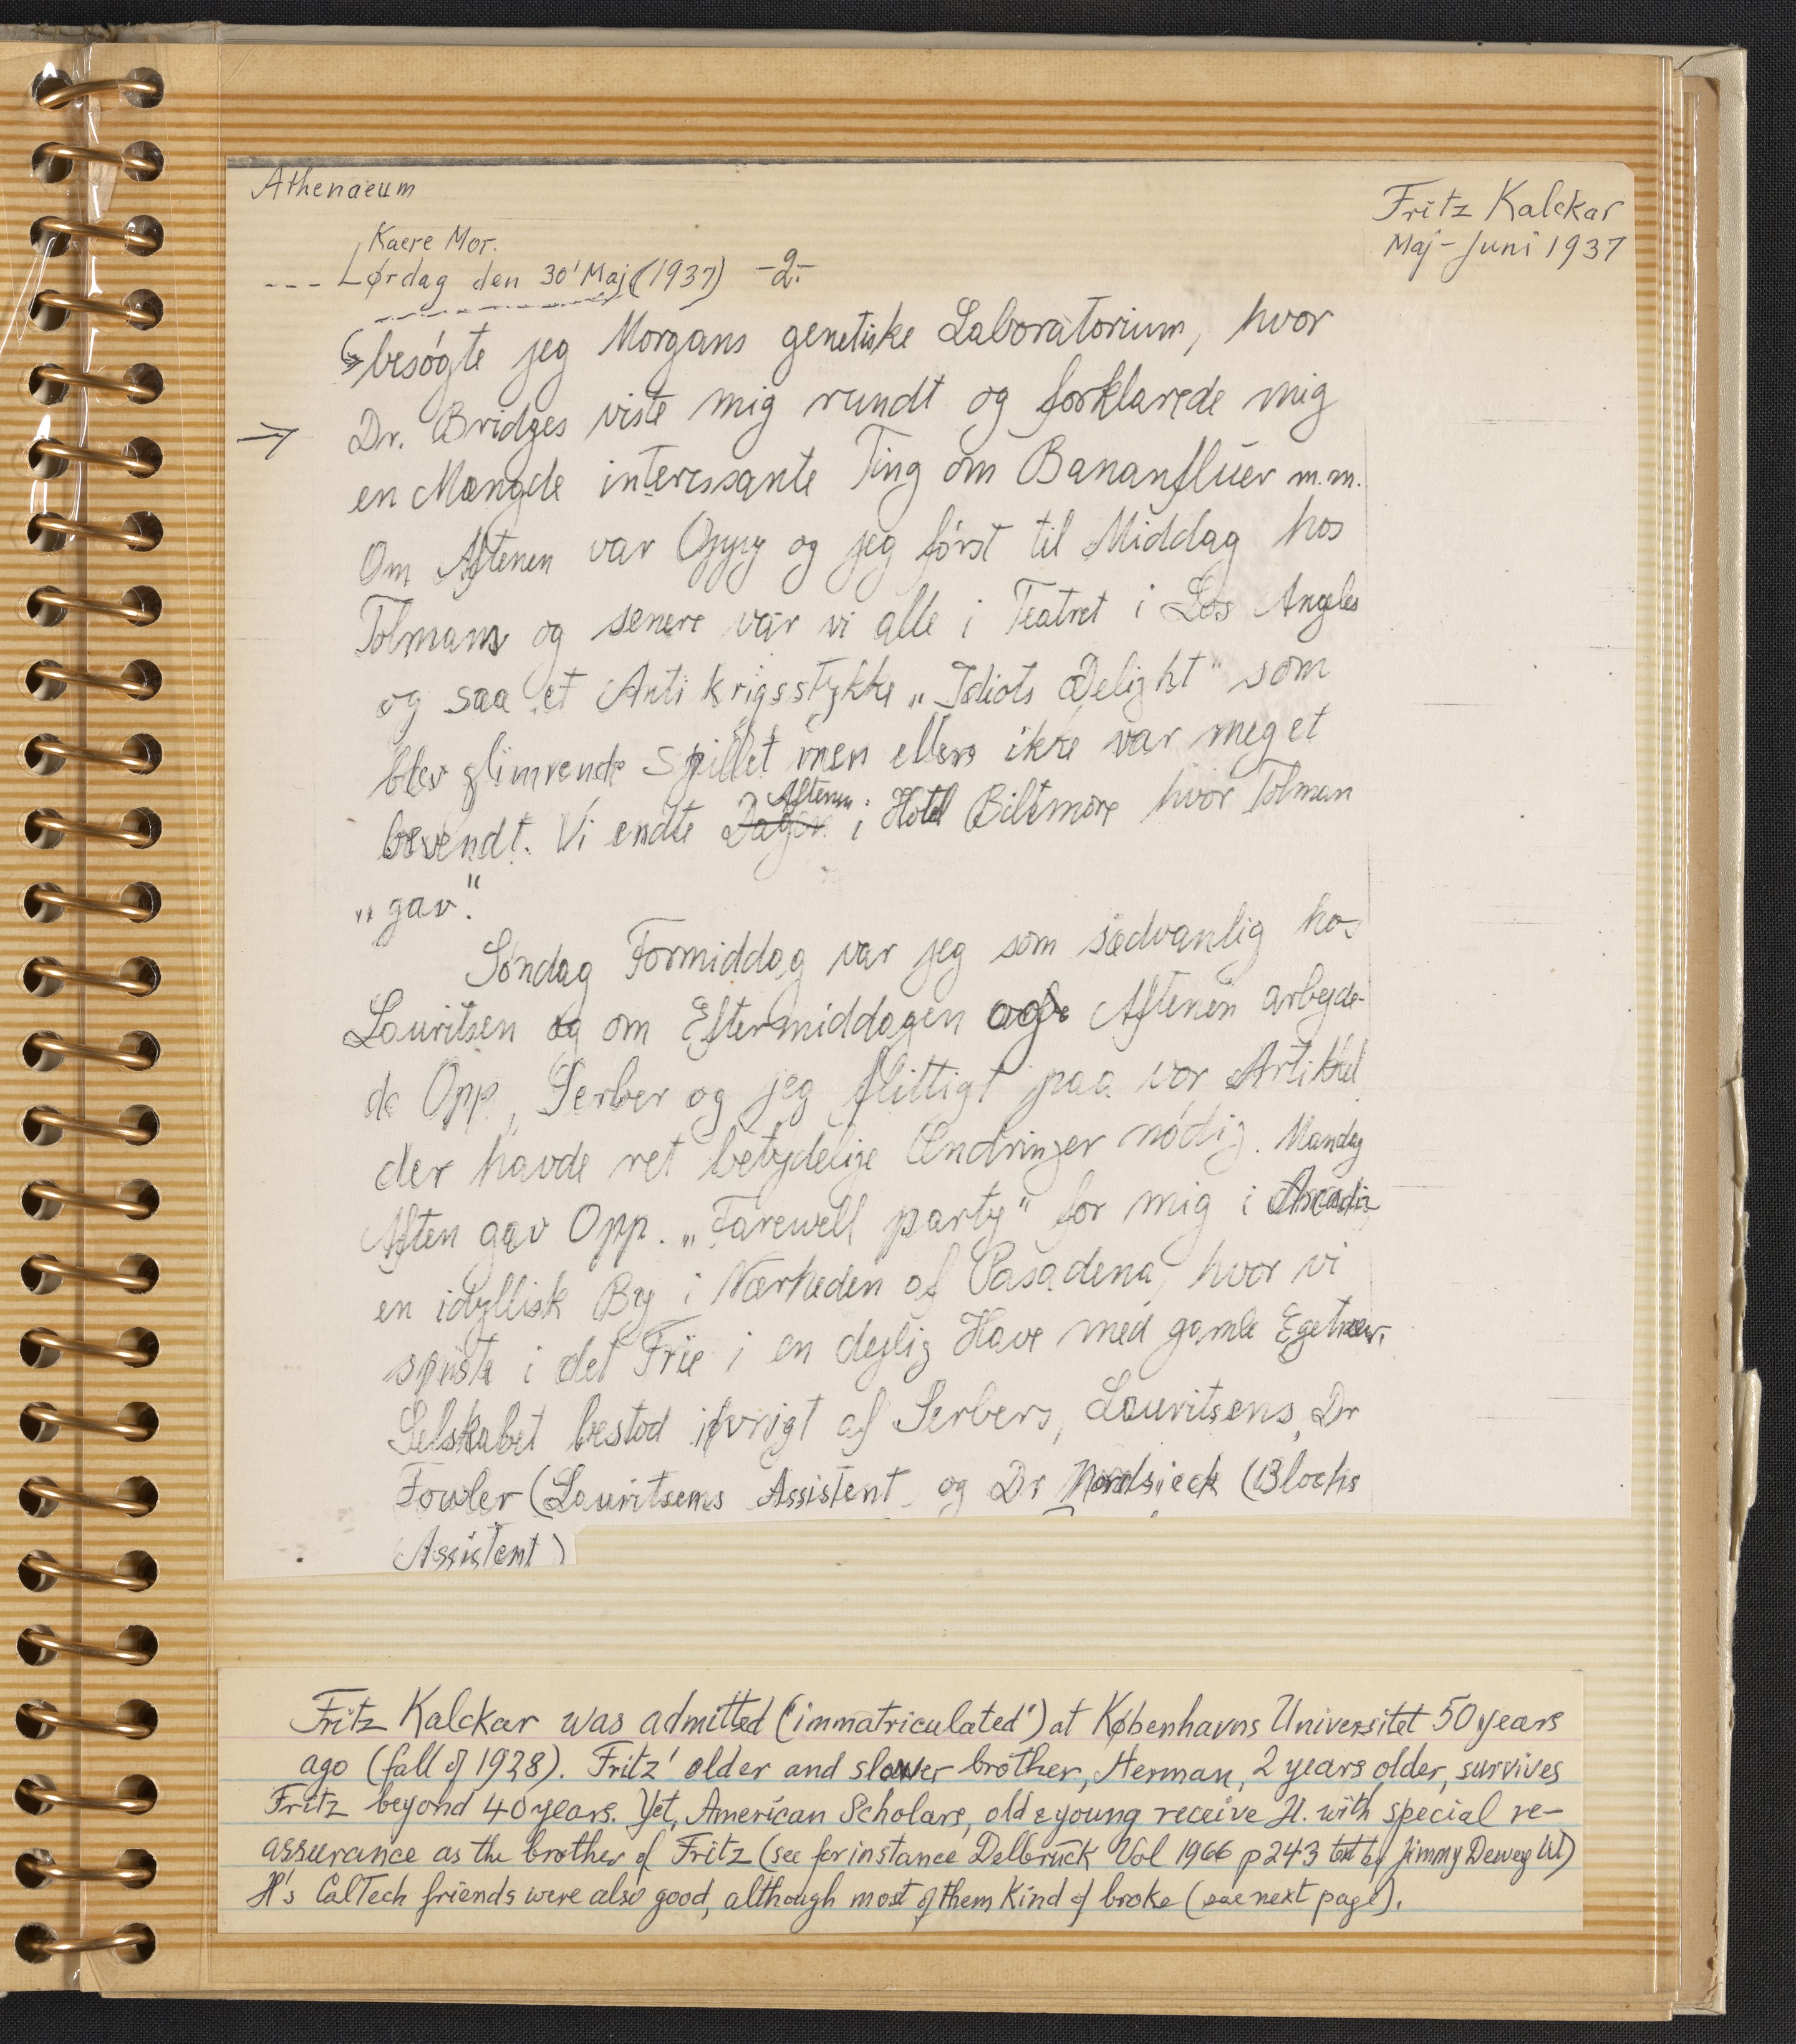 Athenaeum
Fritz Kalckar
Maj - Juni 1937
Kaere Mor.
--- Lørdag den 30' Maj (1937) -2-
besøgte jeg Morgans genetiske Laboratorium, hvor
→ Dr. Bridges viste mig rundt og forklarede mig
en Mængde interessante Ting om Bananfluer m.m.
Om Aftenen var Oppy og jeg først til Middag hos
Tolmans og senere var vi alle i Teatret i Los Angeles
og saa et Anti krigsstykke „Idiots Delight" som
blev glimrende spillet men ellers ikke var meget
bevendt. Vi endte Dagen Aftenen i Hotel Biltmore hvor Tolman
„gav".
Søndag Formiddag var jeg som sædvanlig hos
Lauritsen og om Eftermiddagen og Aftenen arbejde-
de Opp, Serber og jeg flittigt paa vor Artikkel
der havde ret betydelige Ændringer nødig. Mandag
Aften gav Opp. „Farewell party" for mig i Arcadia
en idyllisk By i Nærheden af Pasadena, hvor vi
spiste i det Frie i en dejlig Have med gamle Egetræer.
Selskabet bestod iøvrigt af Serbers, Lauritsens, Dr
Fowler (Lauritsens Assistent og Dr Nordsieck (Blochs
Assistent)
Fritz Kalckar was admitted ("immatriculated") at Københavns Universitet 50 years
ago (fall of 1928). Fritz' older and slower brother, Herman, 2 years older, survives
Fritz beyond 40 years. Yet, American Scholars, old & young receive H. with special re-
assurance as the brother of Fritz (see for instance Delbrück Vol 1966 p 243 text by Jimmy Dewey W)
H's CalTech friends were also good, although most of them kind of broke (see next page).